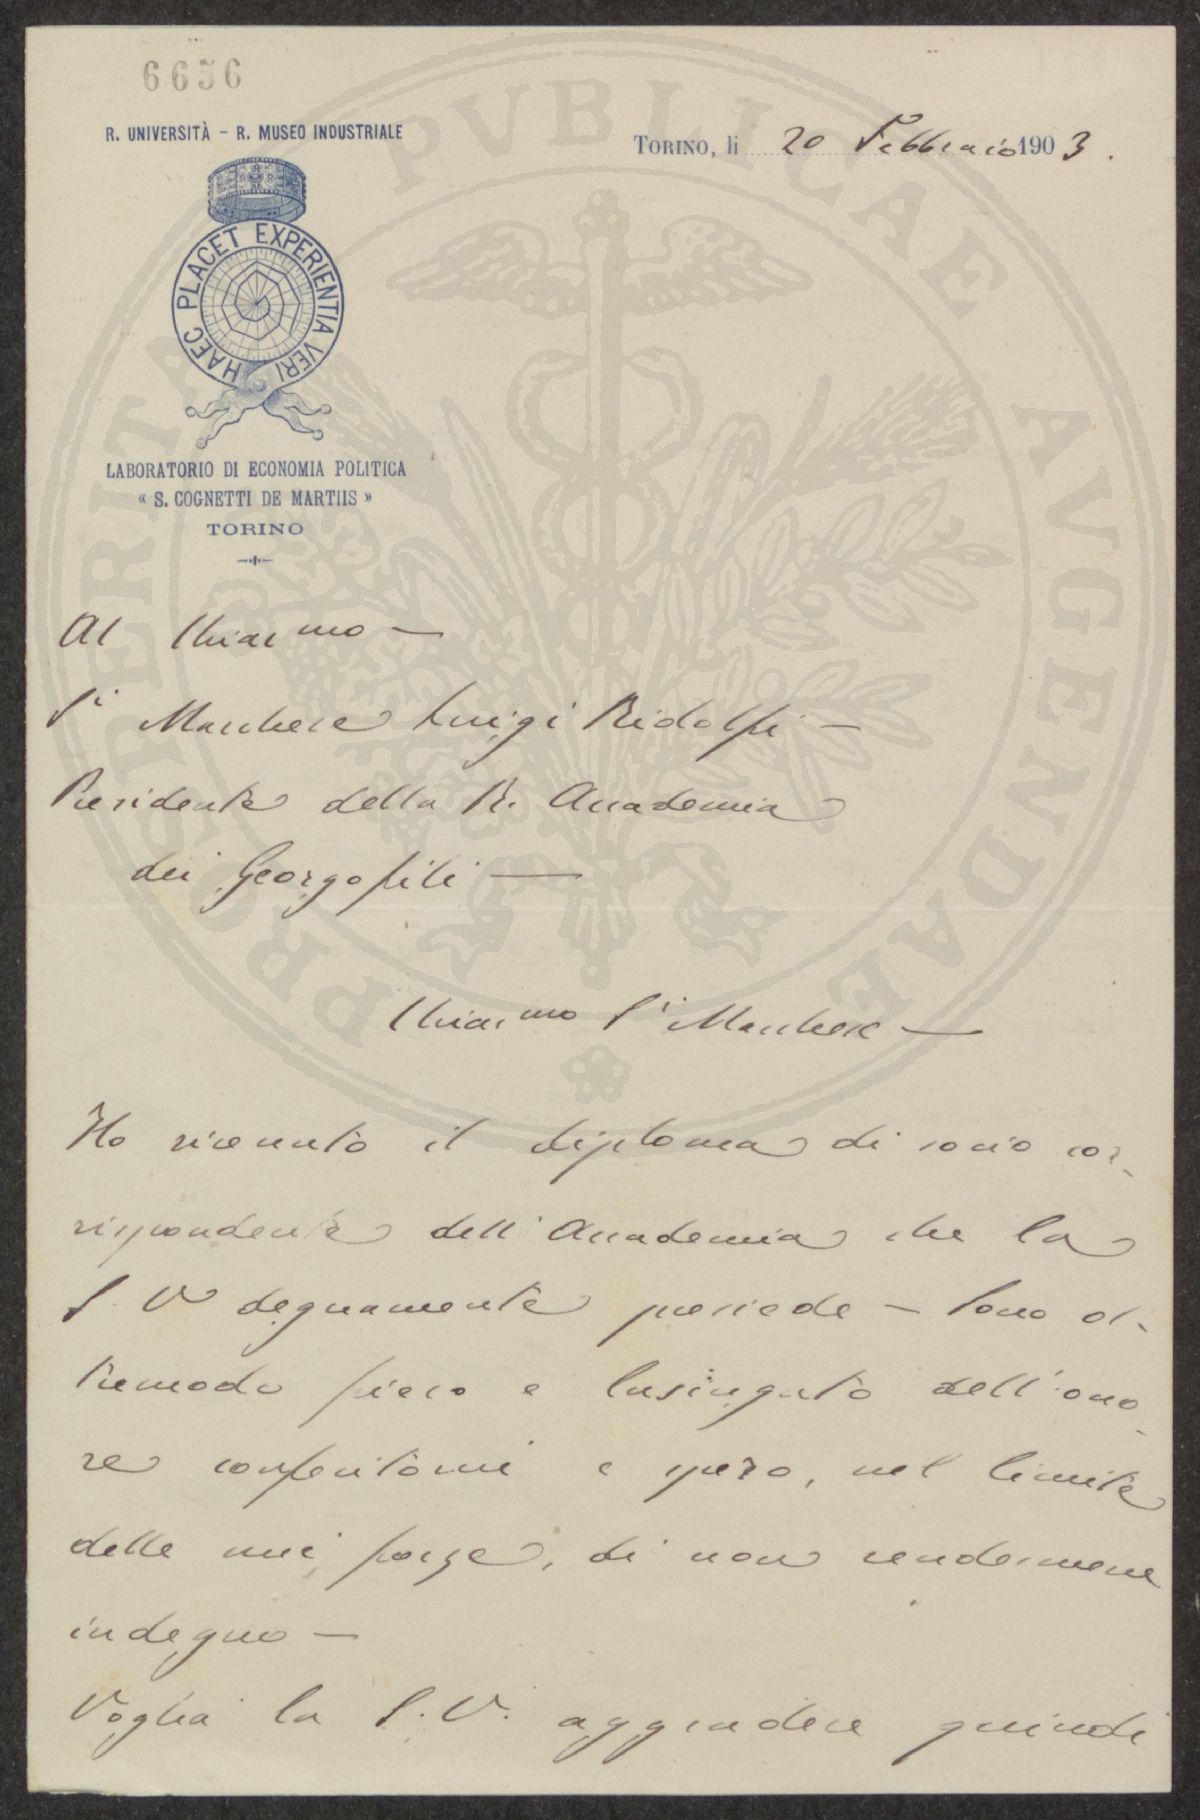 6656
R. UNIVERSITÀ - R. MUSEO INDUSTRIALE
TORINO, li 20 Febbraio 1903.
HAEC PLACET EXPERIENTIA VERI
LABORATORIO DI ECONOMIA POLITICA
« S. COGNETTI DE MARTIIS »
TORINO
Al Chiarmo —
Sr Marchese Luigi Ridolfi —
Presidente della R. Accademia
dei Georgofili —
Chiarmo Sr Marchese —
Ho ricevuto il diploma di socio cor-
rispondente dell'Accademia che la
S. V degnamente presiede — Sono ol-
tremodo fiero e lusingato dell'ono-
re conferitomi e spero, nel limite
delle mie forze, di non rendermene
indegno —
Voglia la S. V. aggradire quindi
PROSPERITATI PVBLICAE AVGENDAE